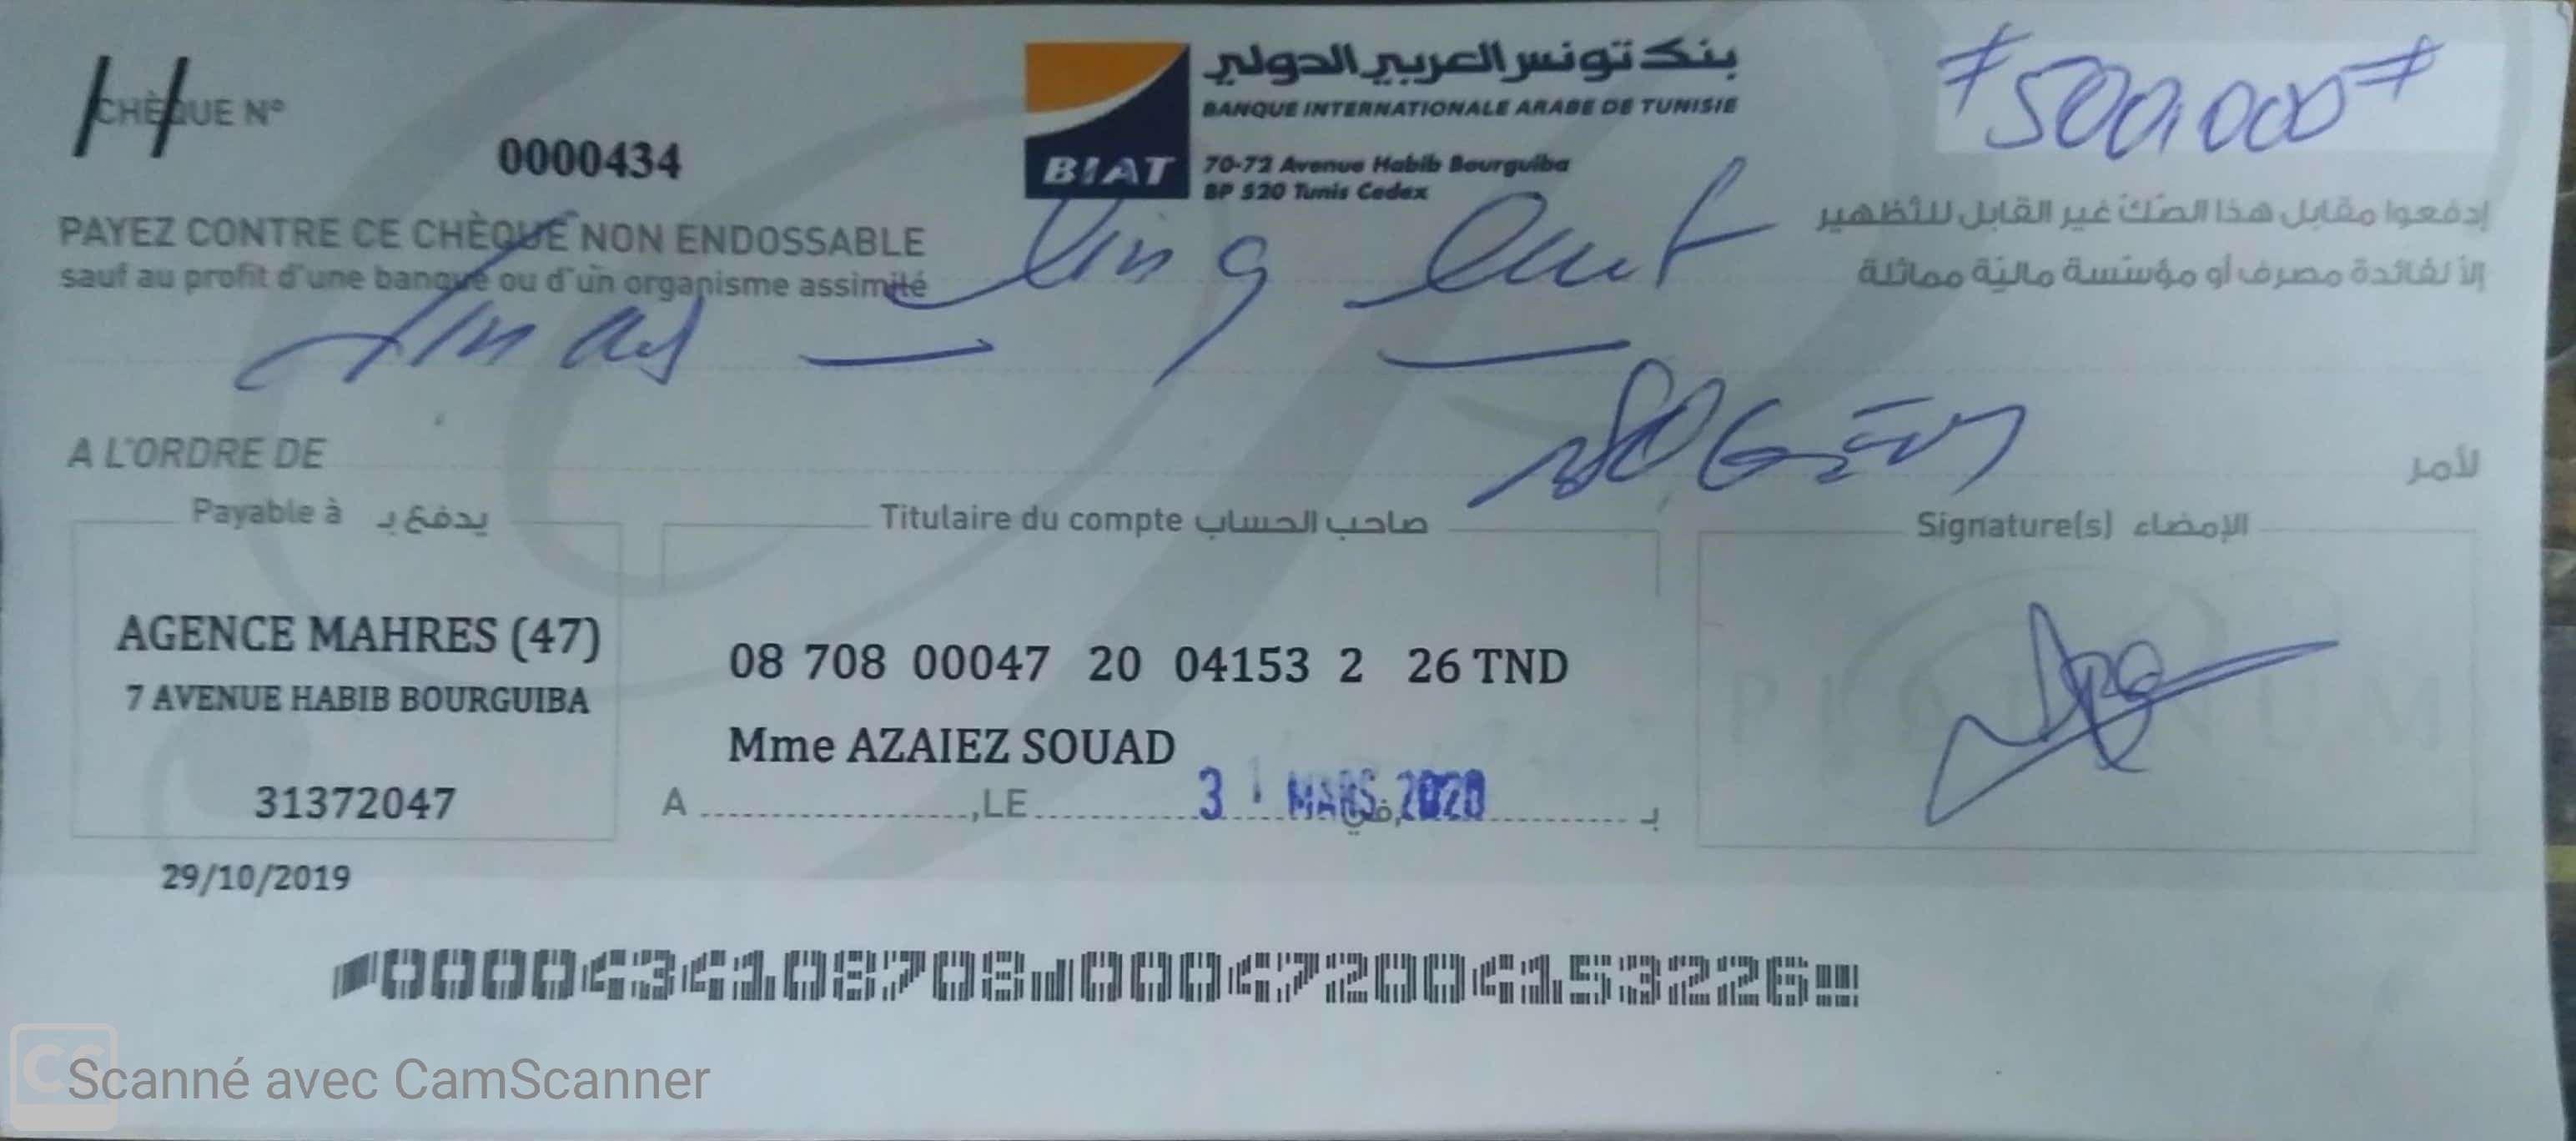 CHÈQUE N°
0000434
بنك تونس العربي الدولي
BANQUE INTERNATIONALE ARABE DE TUNISIE
BIAT
70-72 Avenue Habib Bourguiba
BP 520 Tunis Cedex
≠500,000≠
PAYEZ CONTRE CE CHÈQUE NON ENDOSSABLE
sauf au profit d'une banque ou d'un organisme assimilé
إدفعوا مقابل هذا الصّكّ غير القابل للتّظهير
إلاّ لفائدة مصرف أو مؤسّسة ماليّة مماثلة
cinq cent
dinars
A L'ORDRE DE
لأمر
Payable à يدفع بـ
Titulaire du compte صاحب الحساب
Signature(s) الإمضاء
AGENCE MAHRES (47)
7 AVENUE HABIB BOURGUIBA
31372047
08 708 00047 20 04153 2 26 TND
Mme AZAIEZ SOUAD
A ,LE 31 MARS 2020 في, بـ
PLATINUM
29/10/2019
0000434108708 000472004153226
CS Scanné avec CamScanner